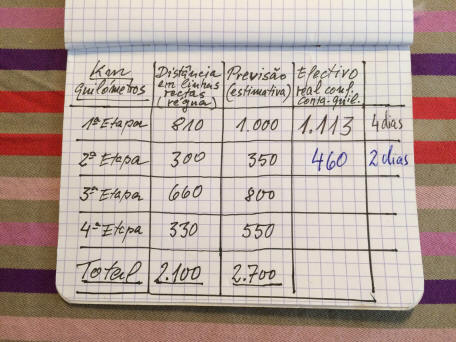 Km quilómetros | Distância em linhas rectas (régua) | Previsão (estimativa) | Efectivo real conf. conta-quil.
1ª Etapa | 810 | 1.000 | 1.113 | 4 dias
2ª Etapa | 300 | 350 | 460 | 2 dias
3ª Etapa | 660 | 800
4ª Etapa | 330 | 550
Total | 2.100 | 2.700